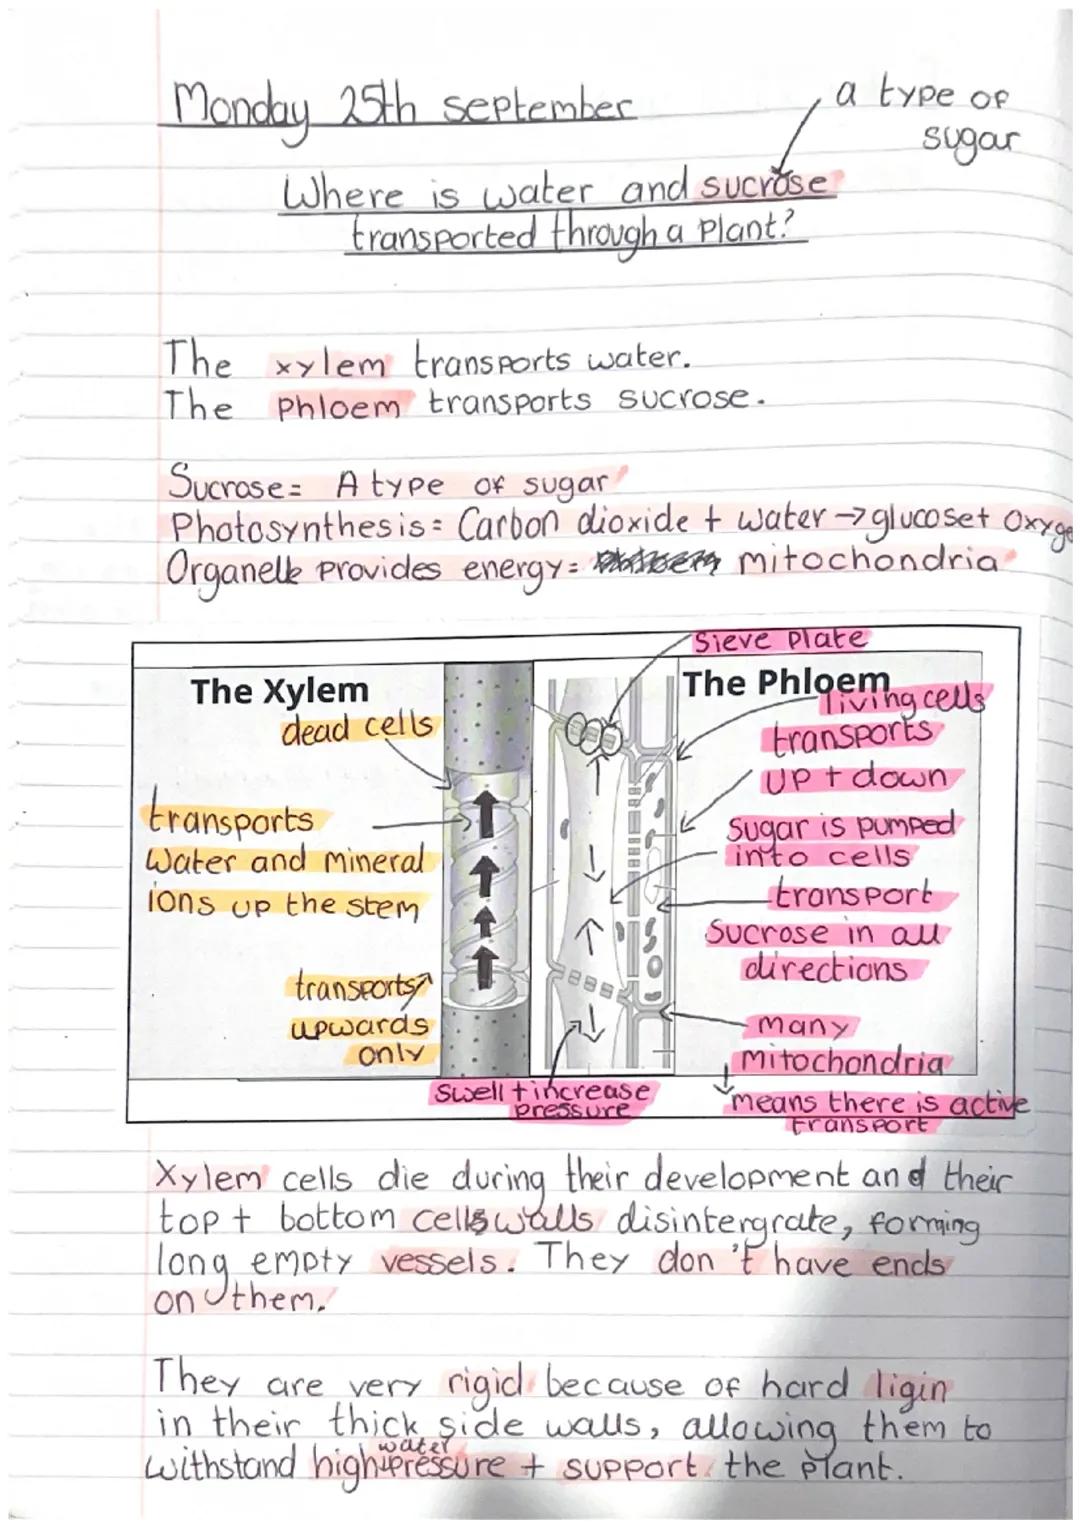 Monday 25th september
a type of
sugar
Where is water and sucrose
transported through a Plant?
The xylem transports water.
The Phloem transports sucrose.
Sucrose= A type of sugar
Photosynthesis= Carbon dioxide + water → glucose + oxyge
Organelle Provides energy= mitochondria
Sieve Plate
The Xylem
dead cells
transports
water and mineral
ions up the stem
transports
upwards
only
The Phloem
living cells
transports
up + down
Sugar is pumped
into cells
transport
Sucrose in all
directions
many
mitochondria
means there is active
transport
Swell + increase
pressure
Xylem cells die during their development and their
top + bottom cells walls disintergrate, forming
long empty vessels. They don't have ends
on them.
They are very rigid because of hard ligin
in their thick side walls, allowing them to
withstand high water pressure + support the plant.